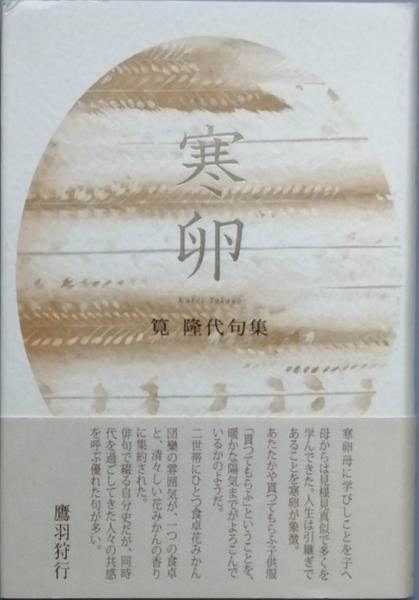 寒卵
Kakei Takayo
筧 隆代句集
寒卵母に学びしことを子へ
母からは見様見真似で多くを
学んできた。人生は引継ぎで
あることを寒卵が象徴。
あたたかや貰つてもらふ子供服
「貰つてもらふ」ということを、
暖かな陽気までがよろこんで
いるかのようだ。
二世帯にひとつ食卓花みかん
団欒の雰囲気が、一つの食卓
と、清々しい花みかんの香り
に集約された。
俳句で綴る自分史だが、同時
代を過ごしてきた人々の共感
を呼ぶ優れた句が多い。
鷹羽狩行